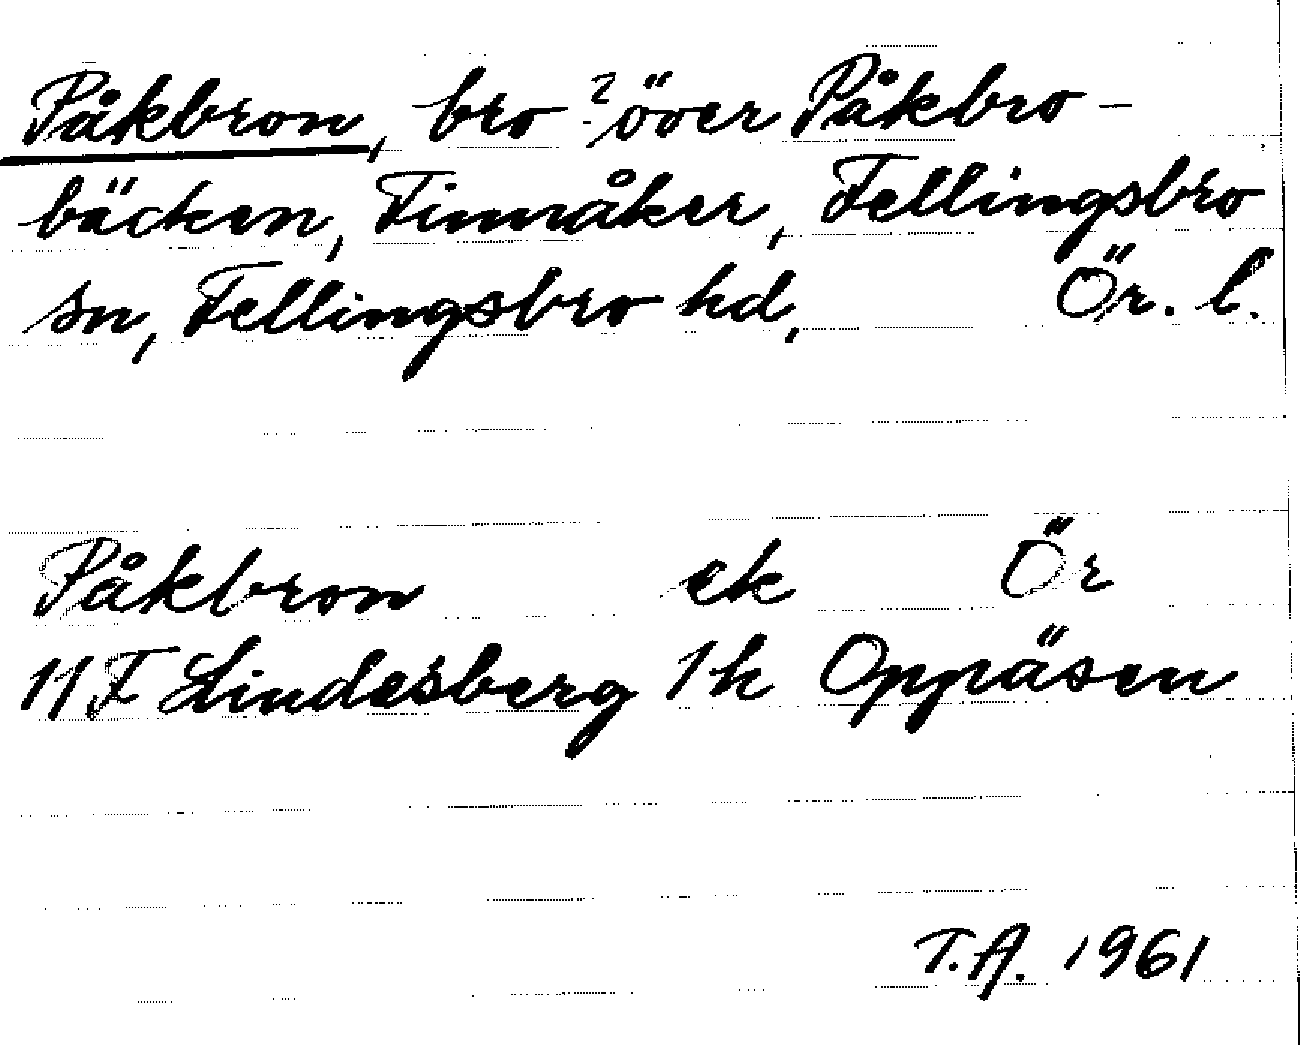 Påkbron, bro ? över Påkbro-
bäcken, Finnåker, Fellingsbro
sn, Fellingsbro hd, Ör. l.
Påkbron ek Ör
11F Lindesberg 1h Oppåsen
T.A. 1961